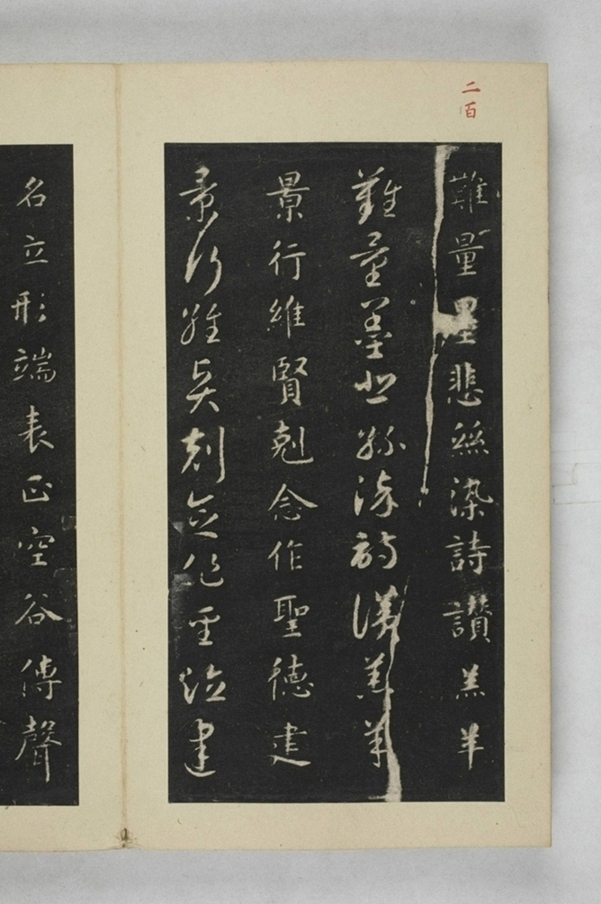 二百
難量墨悲絲染詩讚羔羊
難量墨悲絲染詩讚羔羊
景行維賢剋念作聖德建
景行維賢剋念作聖德建
名立形端表正空谷傳聲